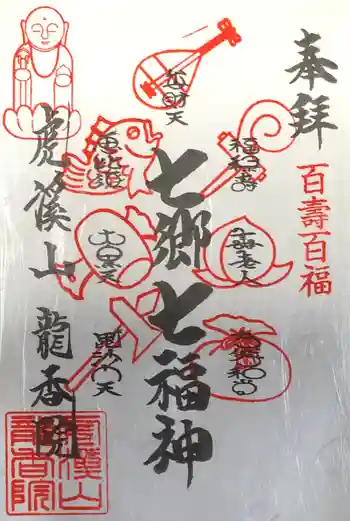 奉拝
百壽百福
七郷七福神
弁財天
福禄寿
恵比須
寿老人
大黒天
布袋和尚
毘沙門天
虎溪山 龍香院
虎溪山
龍香院